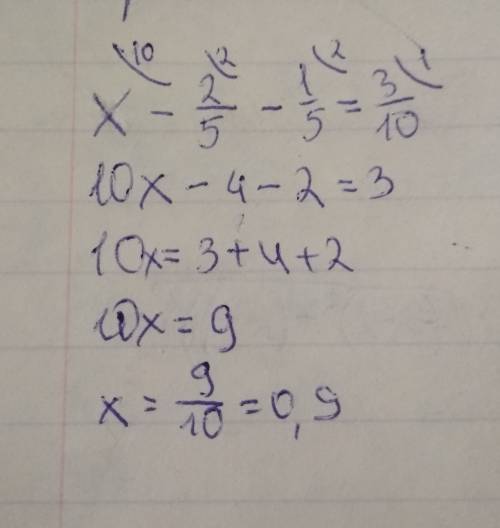 x^10 - 2/5^2 - 1/5^2 = 3/10^1
10x - 4 - 2 = 3
10x = 3 + 4 + 2
10x = 9
x = 9/10 = 0,9